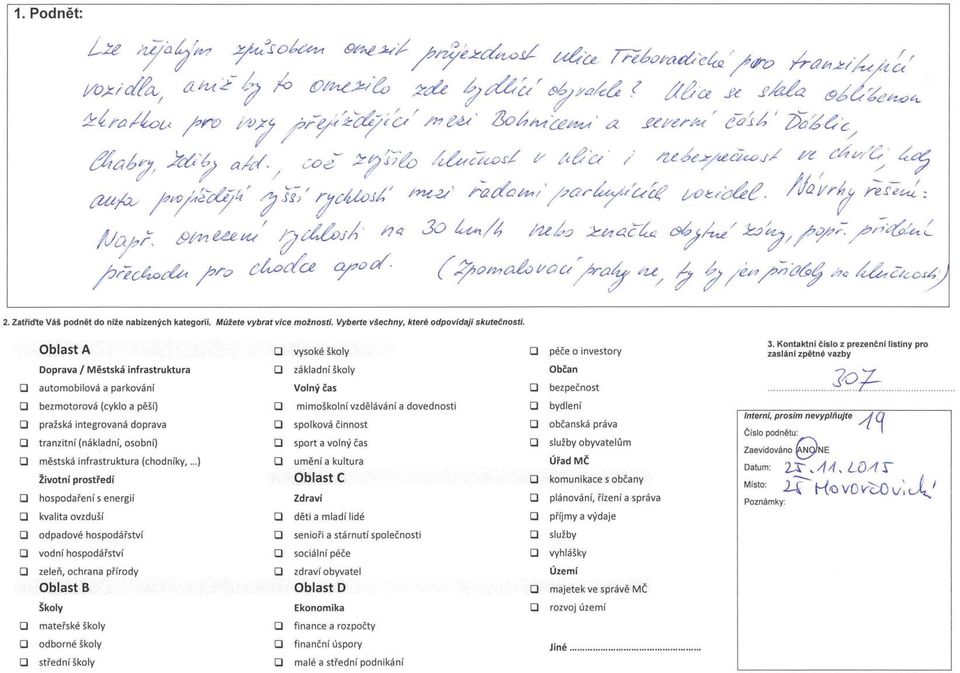 1. Podnět:
Lze nějakým způsobem omezit průjezdnost ulice Třeboradická pro tranzitující
vozidla, aniž by to omezilo zde bydlící obyvatele? Ulice se stala oblíbenou
zkratkou pro vozy přejíždějící mezi Bohnicemi a severní částí Ďáblic,
Chabry, Zdiby atd., což zvýšilo hlučnost v ulici i nebezpečnost ve chvíli, kdy
auta projíždějí vyšší rychlostí mezi řadami parkujících vozidel. Návrhy řešení:
Např. omezení rychlosti na 30 km/h nebo značka obytné zóny, popř. přidání
přechodu pro chodce apod. (Zpomalovací prahy ne, ty by jen přidaly na hlučnosti)
2. Zatřiďte Váš podnět do níže nabízených kategorií. Můžete vybrat více možností. Vyberte všechny, které odpovídají skutečnosti.
Oblast A
Doprava / Městská infrastruktura
automobilová a parkování
bezmotorová (cyklo a pěší)
pražská integrovaná doprava
tranzitní (nákladní, osobní)
městská infrastruktura (chodníky, ...)
Životní prostředí
hospodaření s energií
kvalita ovzduší
odpadové hospodářství
vodní hospodářství
zeleň, ochrana přírody
Oblast B
Školy
mateřské školy
odborné školy
střední školy
vysoké školy
základní školy
Volný čas
mimoškolní vzdělávání a dovednosti
spolková činnost
sport a volný čas
umění a kultura
Oblast C
Zdraví
děti a mladí lidé
senioři a stárnutí společnosti
sociální péče
zdraví obyvatel
Oblast D
Ekonomika
finance a rozpočty
finanční úspory
malé a střední podnikání
péče o investory
Občan
bezpečnost
bydlení
občanská práva
služby obyvatelům
Úřad MČ
komunikace s občany
plánování, řízení a správa
příjmy a výdaje
služby
vyhlášky
Území
majetek ve správě MČ
rozvoj území
Jiné ................................................
3. Kontaktní číslo z prezenční listiny pro
zaslání zpětné vazby
307
Interní, prosím nevyplňujte
Číslo podnětu: 19
Zaevidováno ANO/NE
Datum: 25.11.2015
Místo: ZŠ Hovorčovická
Poznámky: